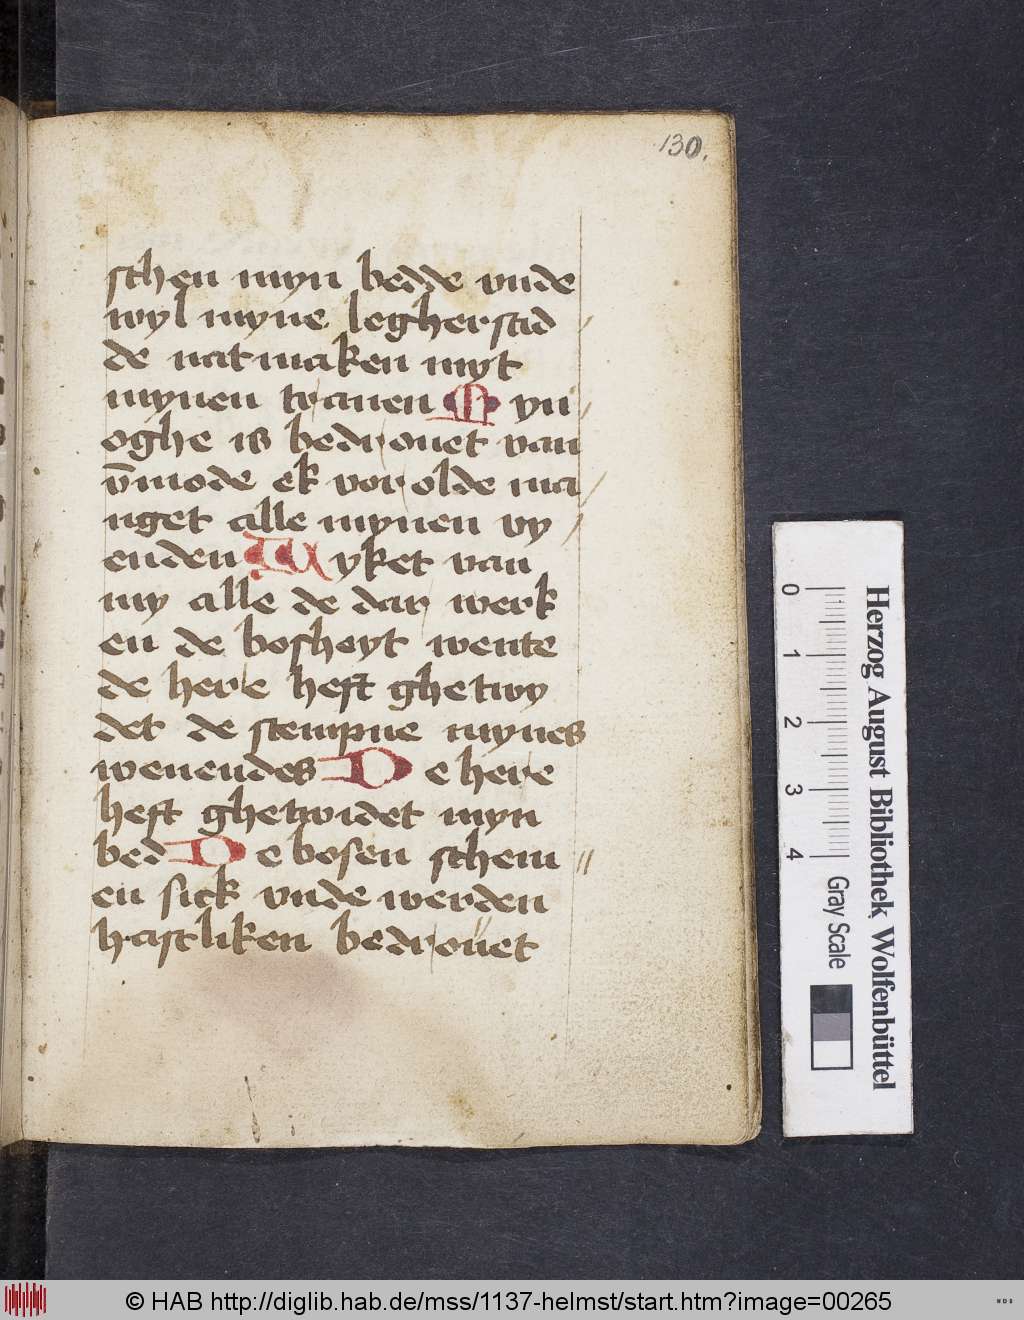 130.
schen myn bedde vnde
wyl myne legherstad
de nat maken myt
mynen tranen Myn
oghe is bedrouet van
vnmode ek vorolde ma
nget alle mynen vy
enden Wyket van
my alle de dar werk
en de bosheyt wente
de here heft ghetwy
det de stempne mynes
wenendes De here
heft ghetwidet myn
bed De bosen schem
en sick vnde werden
hastliken bedrouet
Herzog August Bibliothek Wolfenbüttel
0 1 2 3 4 Gray Scale
© HAB http://diglib.hab.de/mss/1137-helmst/start.htm?image=00265